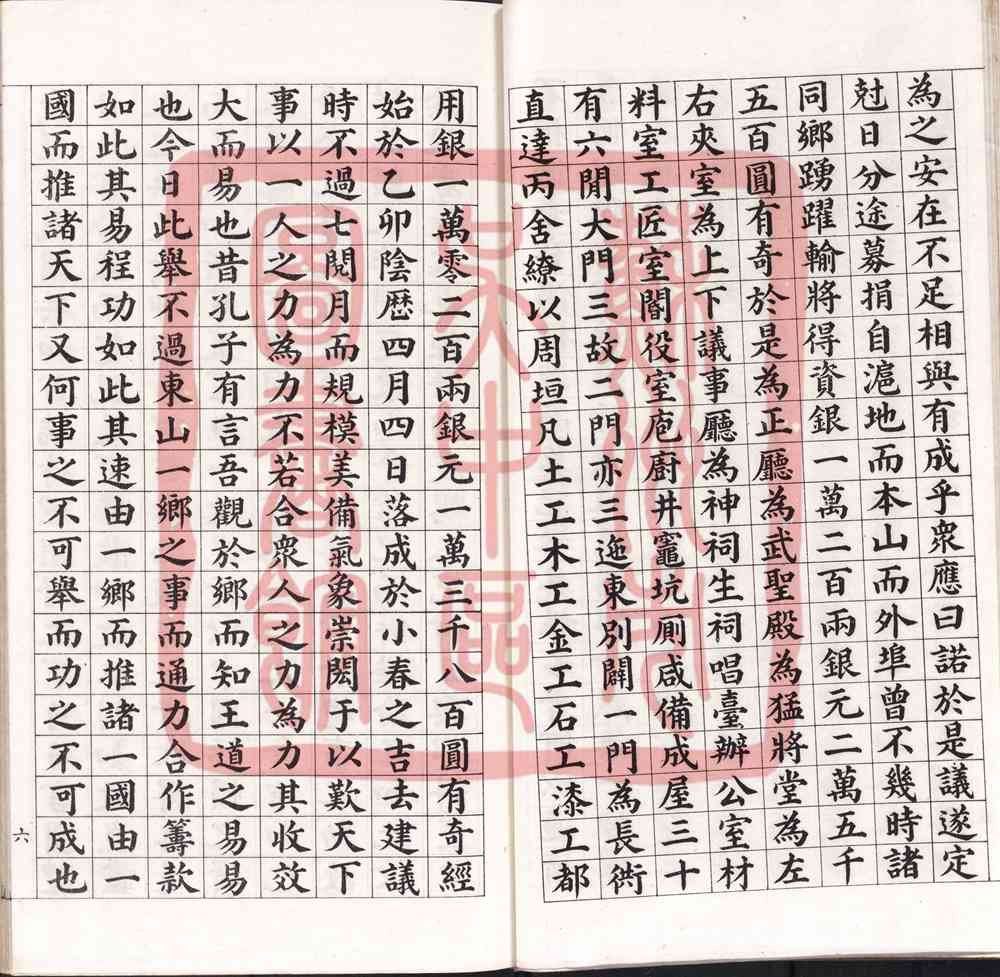 為之安在不足相與有成乎衆應曰諾於是議遂定
尅日分途募捐自滬地而本山而外埠曾不幾時諸
同鄉踴躍輸將得資銀一萬二百兩銀元二萬五千
五百圓有奇於是為正廳為武聖殿為猛將堂為左
右夾室為上下議事廳為神祠生祠唱臺辦公室材
料室工匠室閽役室庖廚井竈坑厠咸備成屋三十
有六閒大門三故二門亦三迤東別闢一門為長衖
直達丙舍繚以周垣凡土工木工金工石工漆工都
用銀一萬零二百兩銀元一萬三千八百圓有奇經
始於乙卯陰歷四月四日落成於小春之吉去建議
時不過七閱月而規模美備氣象崇閎于以歎天下
事以一人之力為力不若合衆人之力為力其收效
大而易也昔孔子有言吾觀於鄉而知王道之易易
也今日此舉不過東山一鄉之事而通力合作籌款
如此其易程功如此其速由一鄉而推諸一國由一
國而推諸天下又何事之不可舉而功之不可成也
六
蘇州市
吳中區
圖書館